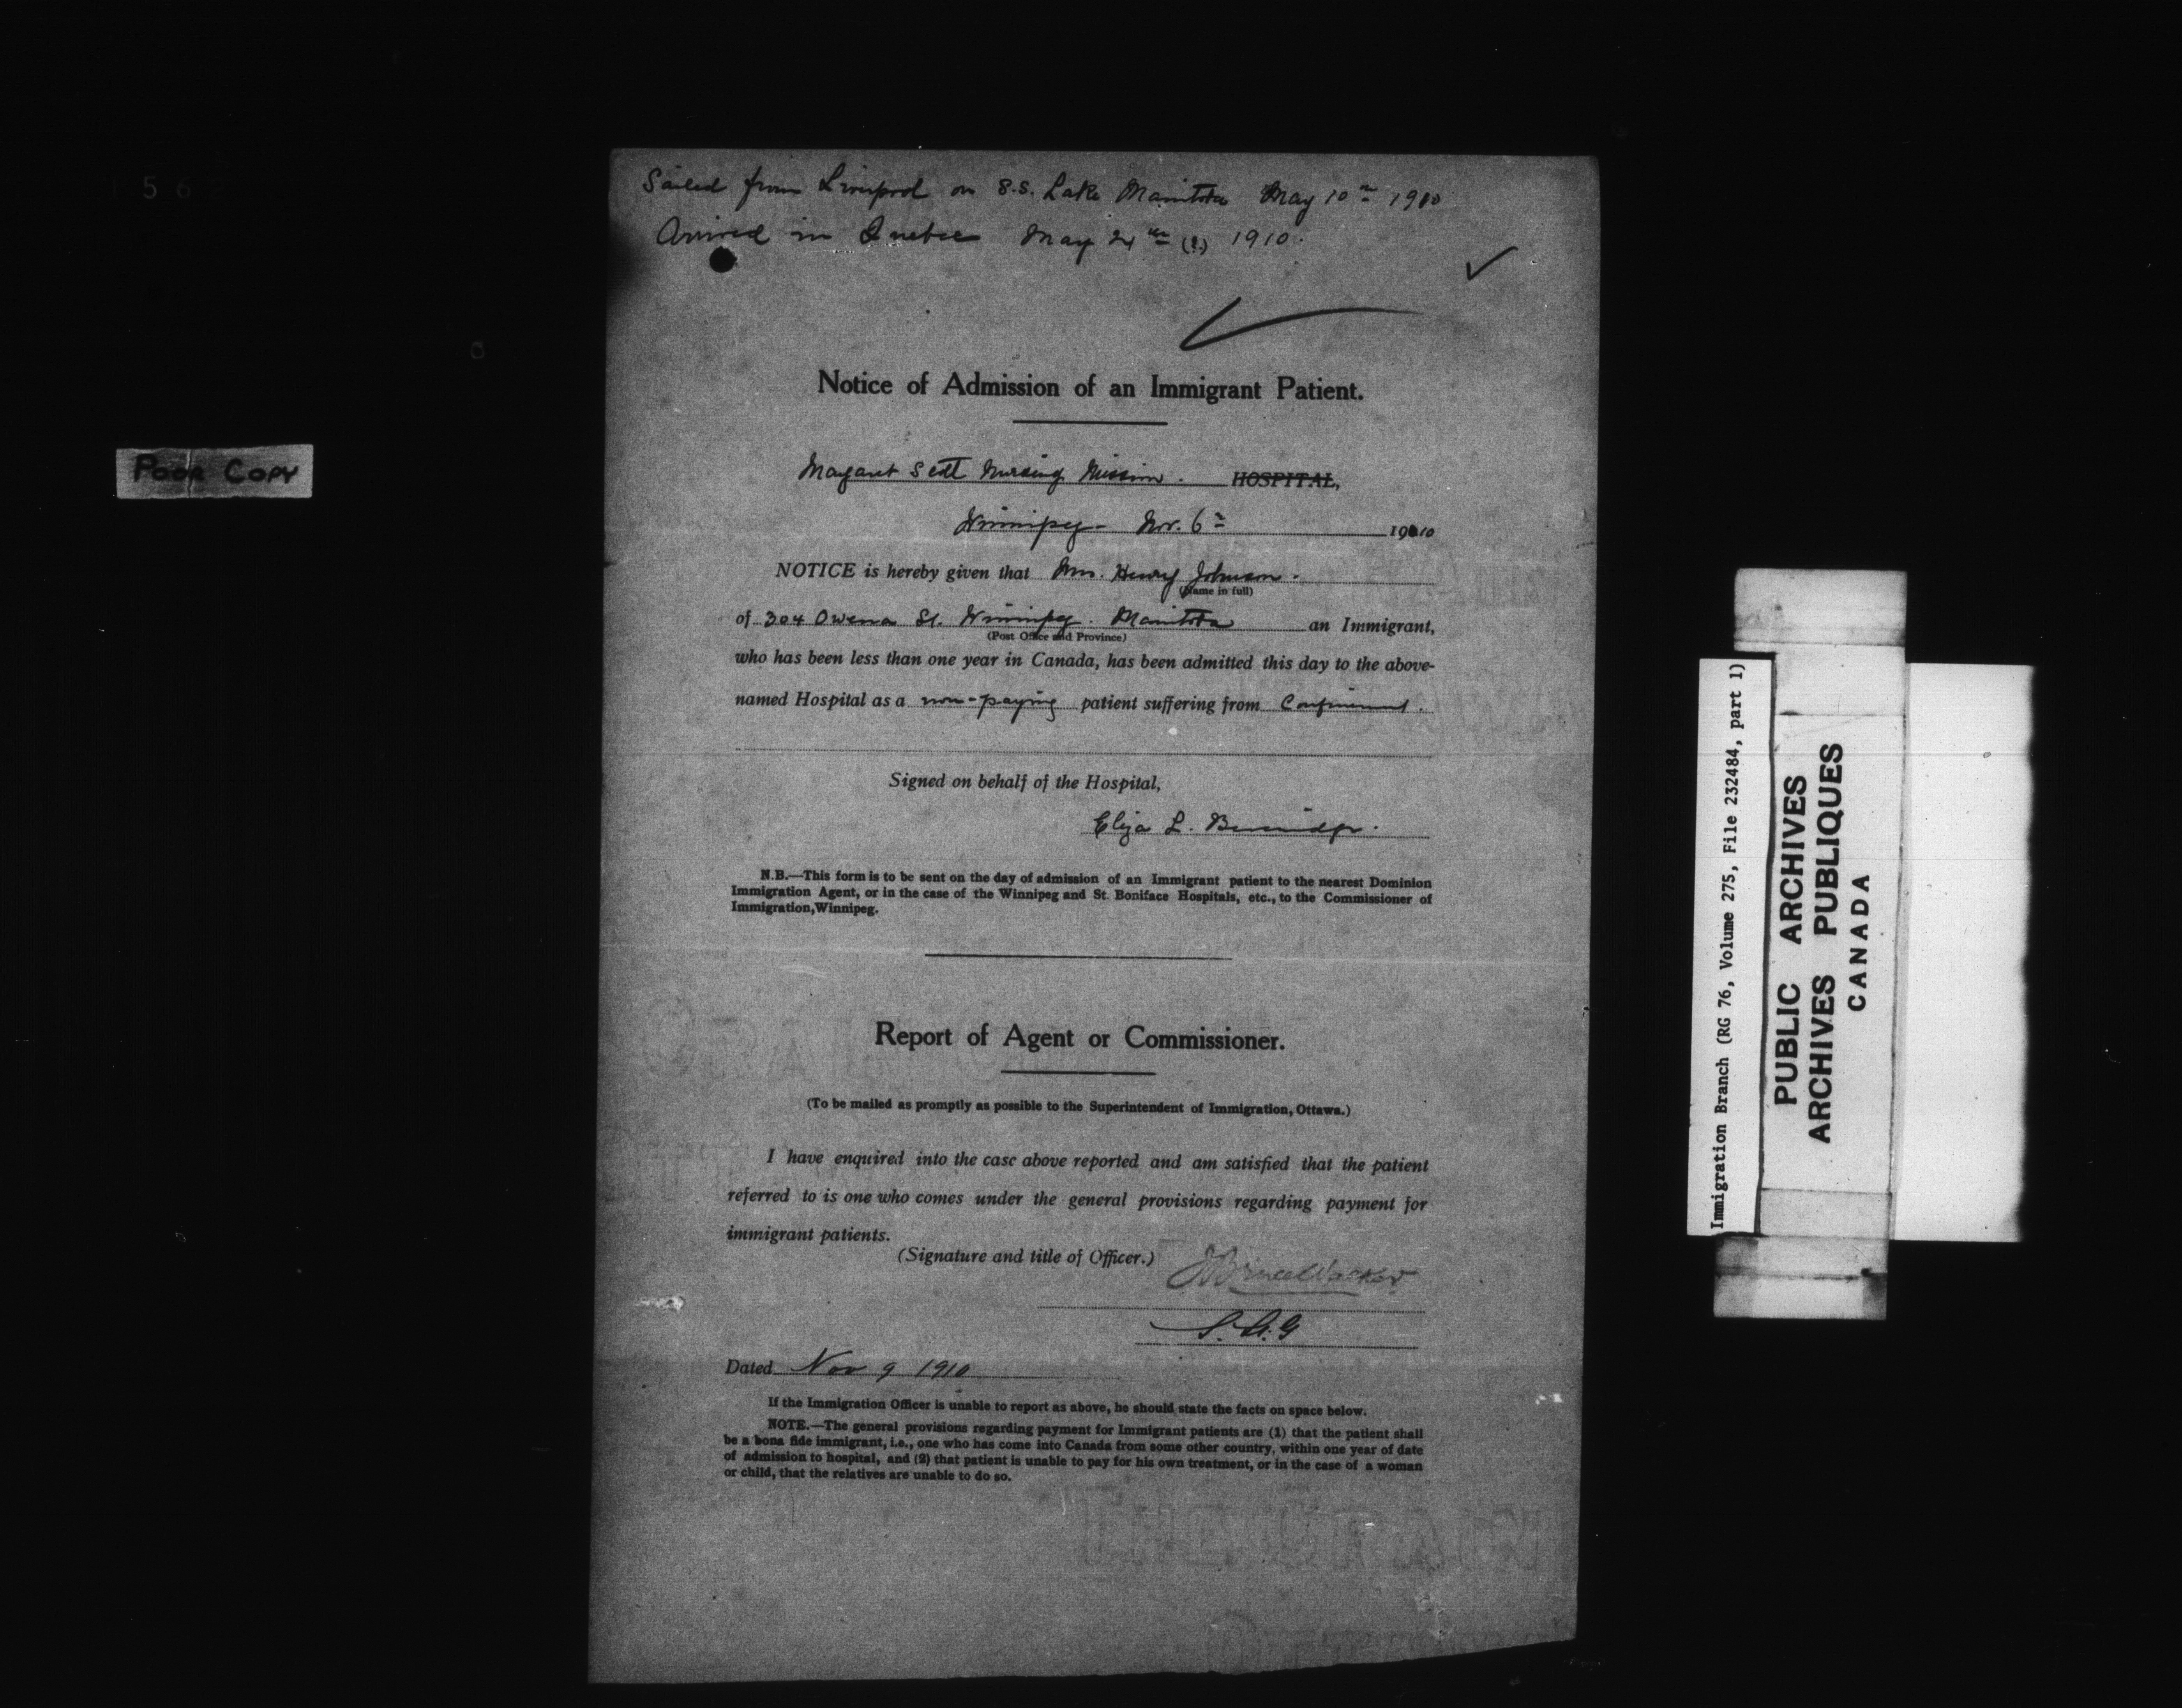 Sailed from Liverpool on S.S. Lake Manitoba May 10th 1910
Arrived in Quebec May 24th (?) 1910.
Notice of Admission of an Immigrant Patient.
Margaret Scott Nursing Mission. HOSPITAL,
Winnipeg- Nov. 6th 1910
NOTICE is hereby given that Mrs. Henry Johnson.
(Name in full)
of 304 Owena St. Winnipeg. Manitoba an Immigrant,
(Post Office and Province)
who has been less than one year in Canada, has been admitted this day to the above-
named Hospital as a non-paying patient suffering from Confinement.
Signed on behalf of the Hospital,
Eliza L. Beveridge.
N.B.—This form is to be sent on the day of admission of an Immigrant patient to the nearest Dominion
Immigration Agent, or in the case of the Winnipeg and St. Boniface Hospitals, etc., to the Commissioner of
Immigration, Winnipeg.
Report of Agent or Commissioner.
(To be mailed as promptly as possible to the Superintendent of Immigration, Ottawa.)
I have enquired into the case above reported and am satisfied that the patient
referred to is one who comes under the general provisions regarding payment for
immigrant patients.
(Signature and title of Officer.) J Bruce Walker
Dated Nov 9 1910
If the Immigration Officer is unable to report as above, he should state the facts on space below.
NOTE.—The general provisions regarding payment for Immigrant patients are (1) that the patient shall
be a bona fide immigrant, i.e., one who has come into Canada from some other country, within one year of date
of admission to hospital, and (2) that patient is unable to pay for his own treatment, or in the case of a woman
or child, that the relatives are unable to do so.
POOR COPY
Immigration Branch (RG 76, Volume 275, File 232484, part 1)
PUBLIC ARCHIVES
ARCHIVES PUBLIQUES
CANADA